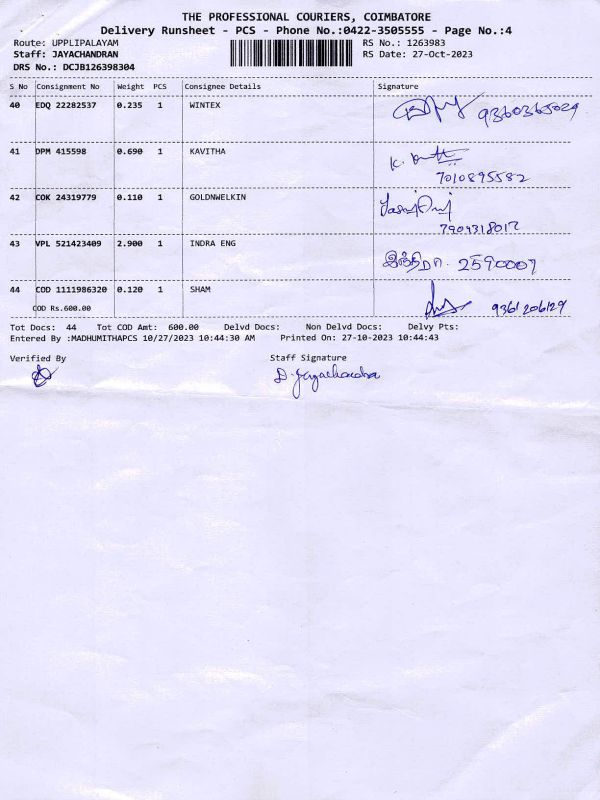 THE PROFESSIONAL COURIERS, COIMBATORE
Delivery Runsheet - PCS - Phone No.:0422-3505555 - Page No.:4
Route: UPPLIPALAYAM RS No.: 1263983
Staff: JAYACHANDRAN RS Date: 27-Oct-2023
DRS No.: DCJB126398304
S No Consignment No Weight PCS Consignee Details Signature
40 EDQ 22282537 0.235 1 WINTEX 9360365029
41 DPM 415598 0.690 1 KAVITHA K.
7010895582
42 COK 24319779 0.110 1 GOLDNWELKIN
7909318017
43 VPL 521423409 2.900 1 INDRA ENG இந்திரா. 2590009
44 COD 1111986320 0.120 1 SHAM 9361206129
COD Rs.600.00
Tot Docs: 44 Tot COD Amt: 600.00 Delvd Docs: Non Delvd Docs: Delvy Pts:
Entered By :MADHUMITHAPCS 10/27/2023 10:44:30 AM Printed On: 27-10-2023 10:44:43
Verified By Staff Signature
D. Jayachandra